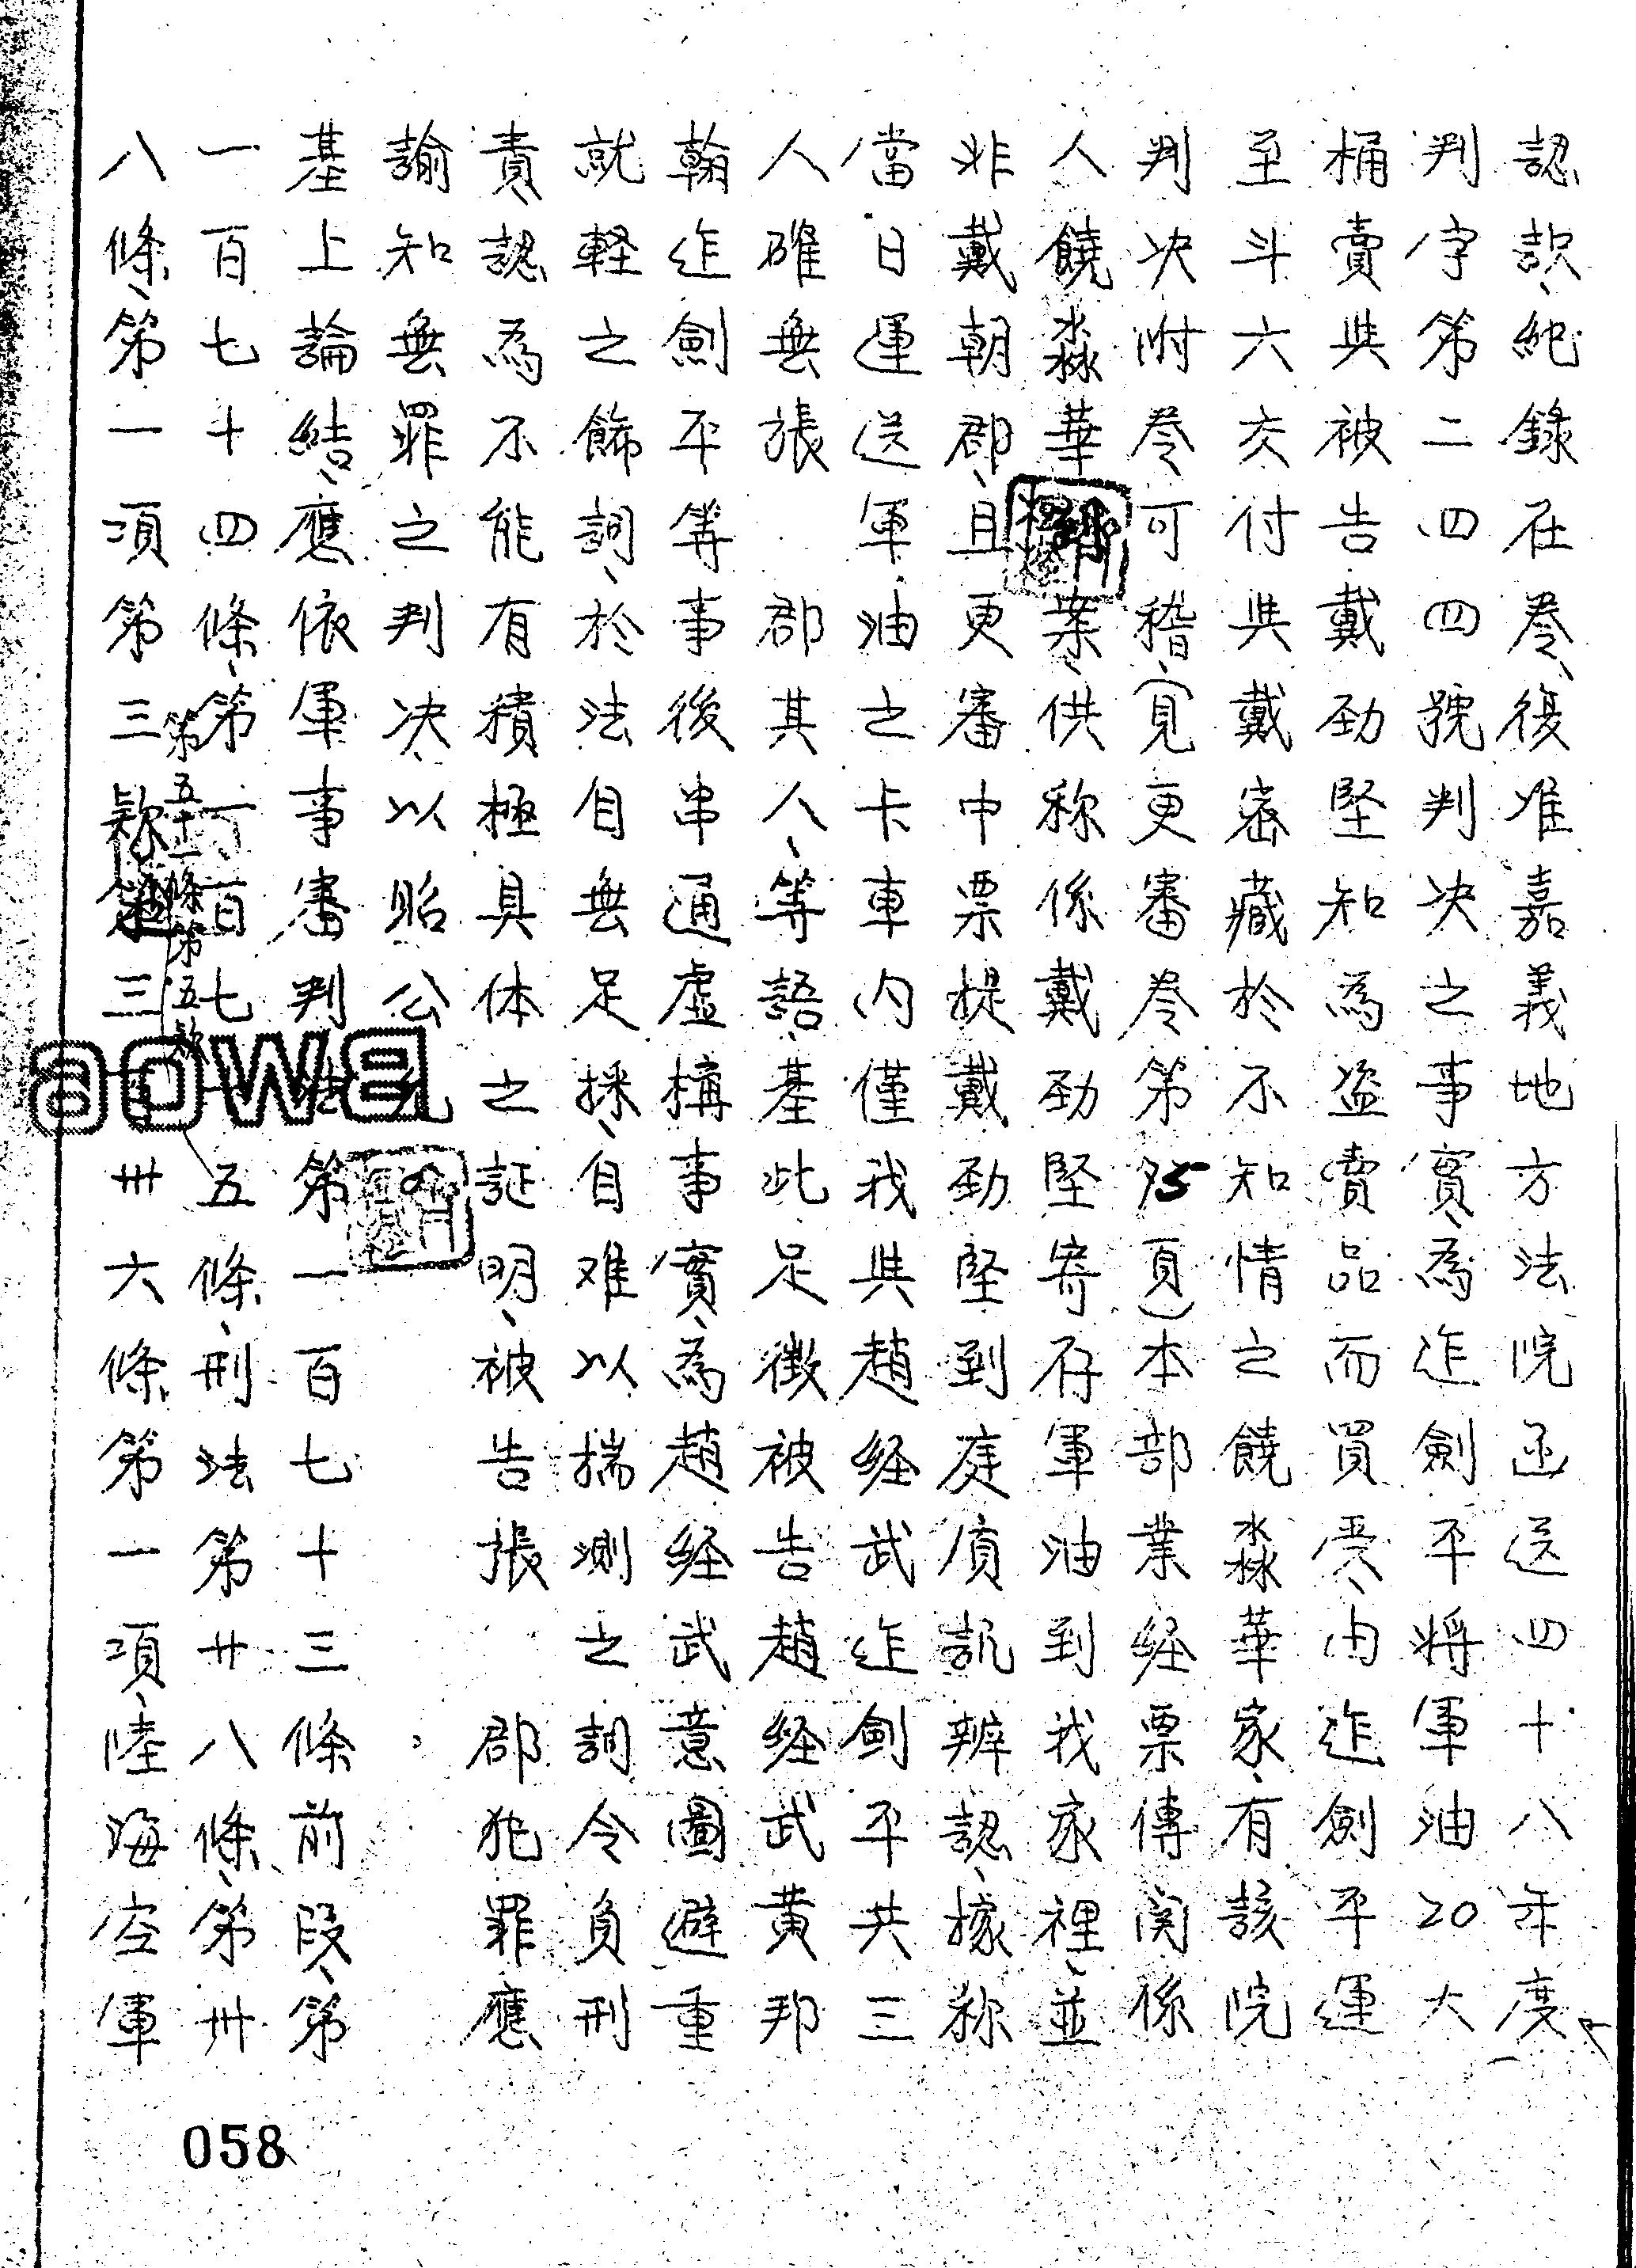 認訳、紀錄在卷、復准嘉義地方法院函送四十八年度
判字第二四四號判决之事實、為迮劍平將軍油20大
桶賣與被告戴勁堅知為盜賣品而買受、由迮劍平運
至斗六交付與戴密藏於不知情之饒淼華家、有該院
判决附卷可稽、(見更審卷第75頁)本部業經票傳関係
人饒淼華業、供称係戴勁堅寄存軍油到我家裡、並
非戴朝郡、且更審中票提戴勁堅到庭質訊辨認、據称
當日運送軍油之卡車內僅我與趙経武迮劍平共三
人確無張 郡其人、等語、基此足徵被告趙経武黃邦
翰迮劍平等事後串通虛構事實、為趙経武意圖避重
就軽之飾詞、於法自無足採、自难以揣測之詞令負刑
責、認為不能有積極具体之証明、被告張 郡犯罪應
諭知無罪之判决、以昭公 。
基上論結、應依軍事審判法第一百七十三條前段、第
一百七十四條、第一百七 五條、刑法第廿八條、第卅
八條、第一項第三款 三 卅六條第一項、陸海空軍
第五十一條第五款
058